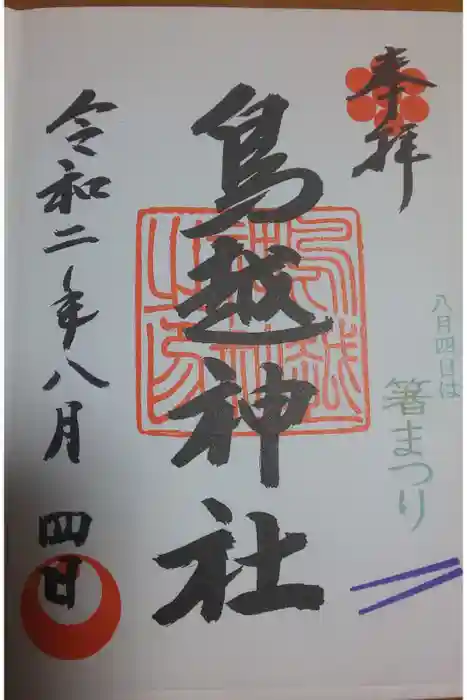 奉拝
八月四日は
箸まつり
鳥越神社
鳥越神社之印
令和二年八月四日